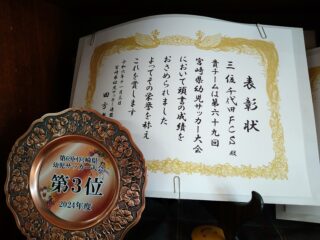 表彰状
三位 千代田FCS殿
貴チームは第六十九回
宮崎県幼児サッカー大会
において頭書の成績を
おさめられました
よってその栄誉を称え
これを賞します
第69回宮崎県
幼児サッカー大会
第3位
2024年度